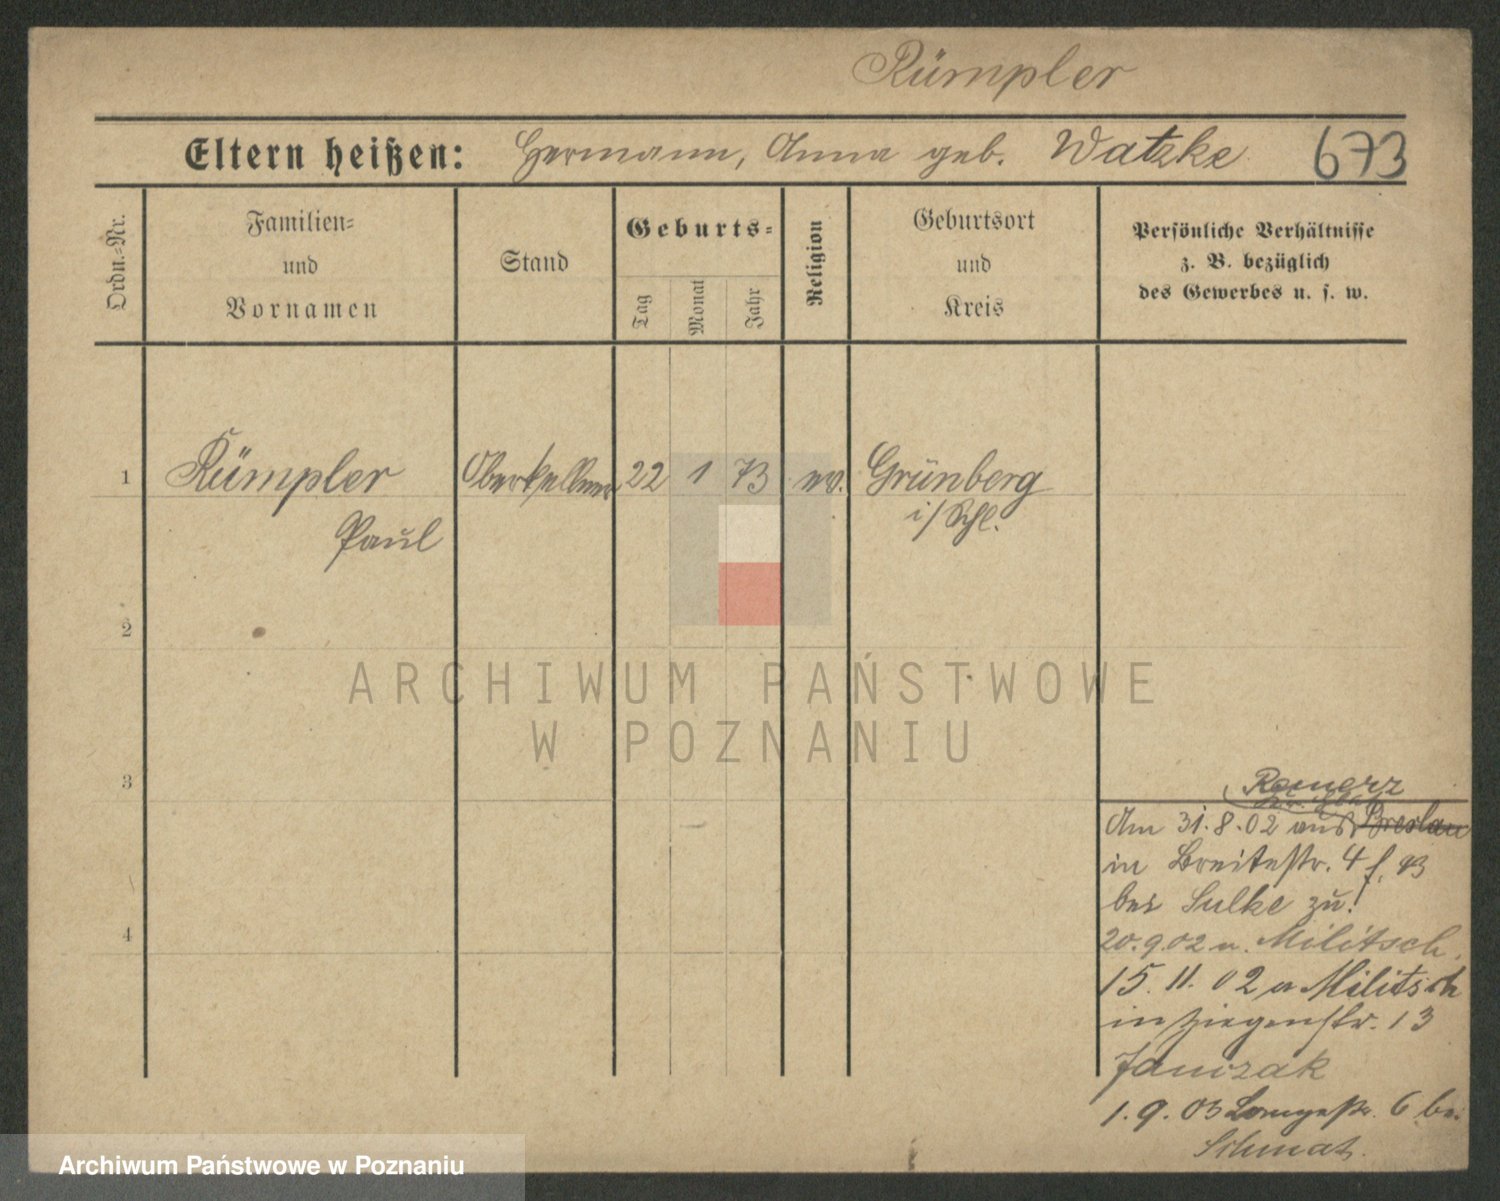 Rümpler
Eltern heißen: Hermann, Anna geb. Watzke 673
Ordn.-Nr.
Familien-
und
Vornamen
Stand
Geburts-
Tag
Monat
Jahr
Religion
Geburtsort
und
Kreis
Persönliche Verhältnisse
z. B. bezüglich
des Gewerbes u. s. w.
1 Rümpler Oberkellner 22 1 73 ev. Grünberg
Paul i/Schl.
2
ARCHIWUM PAŃSTWOWE
W POZNANIU
3
Reinerz
Am 31.8.02 aus Breslau
in Breitestr. 4
bei Sulke zu!
4
20.9.02 n. Militsch.
15.11.02 a Militsch
in Ziegenstr. 13
Janiczak
1.9.03 Langestr. 6 bei
Schmat.
Archiwum Państwowe w Poznaniu